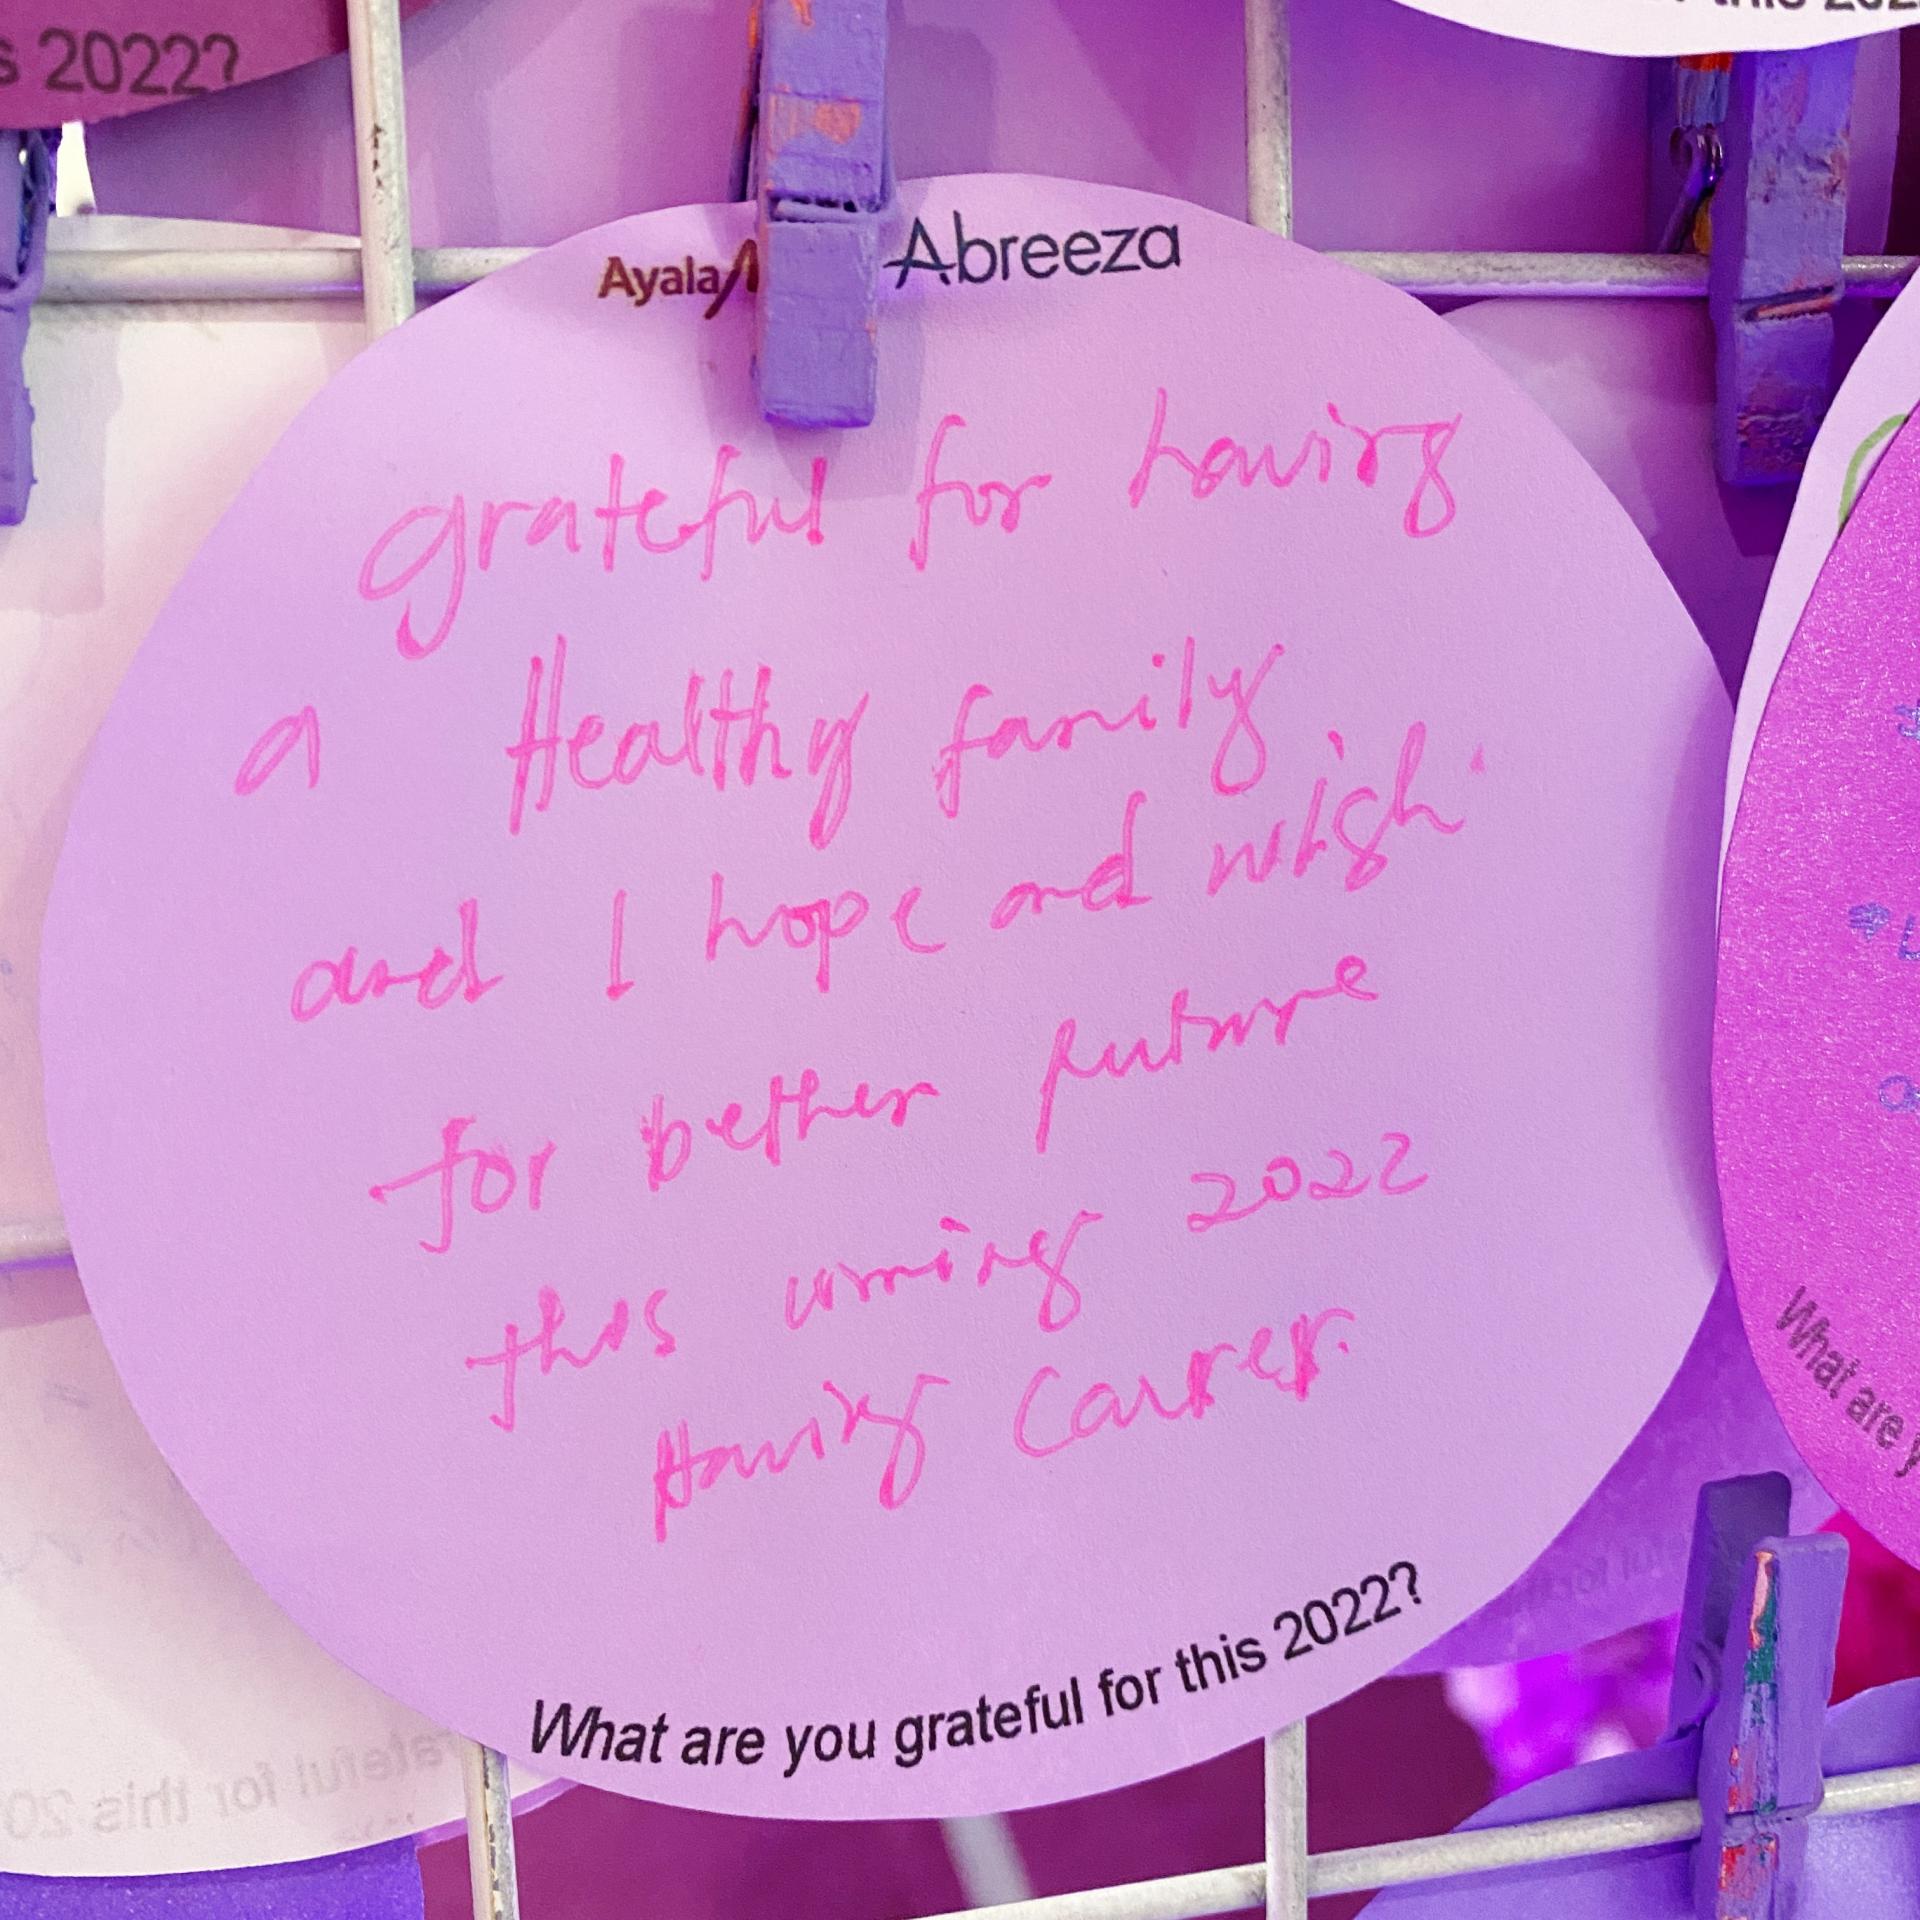 s 2022?
this 202
Ayala
Abreeza
grateful for having
a Healthy family
and I hope and wish
for bether future
this coming 2022
Having Carrer.
What are you grateful for this 2022?
What are y
grateful for this 20